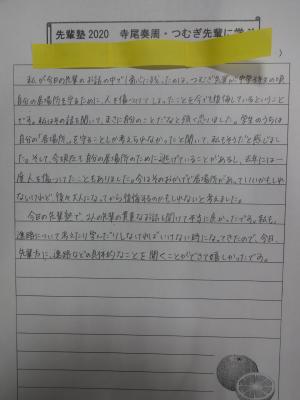 先輩塾2020 寺尾奏周・つむぎ先輩に学
私が今日の先輩のお話の中で1番心に残ったのは、つむぎ先輩が中学時代の頃
自分の居場所を守るために、人を傷つけてしまったことを今でも後悔しているということ
です。私はその話を聞いて、まさに自分のことだなと強く思いました。学生のうちは
自分の「居場所」を守ることしか考えられなかったと聞いて、私もそうだと感じまし
た。そして、今現在も自分の居場所のために逃げていることがあるし、去年には一
度人を傷つけたこともありました。今はそのおかげで居場所があっていいかもしれ
ないけれど、後々大人になってから後悔するのかもしれないと考えました。
今日の先輩塾で、2人の先輩の貴重なお話も聞けて本当に良かったです。私も、
進路について考えたり学んだりしなければいけない時になってきたので、今日、
先輩方に、進路などの具体的なことを聞くことができて嬉しかったです。